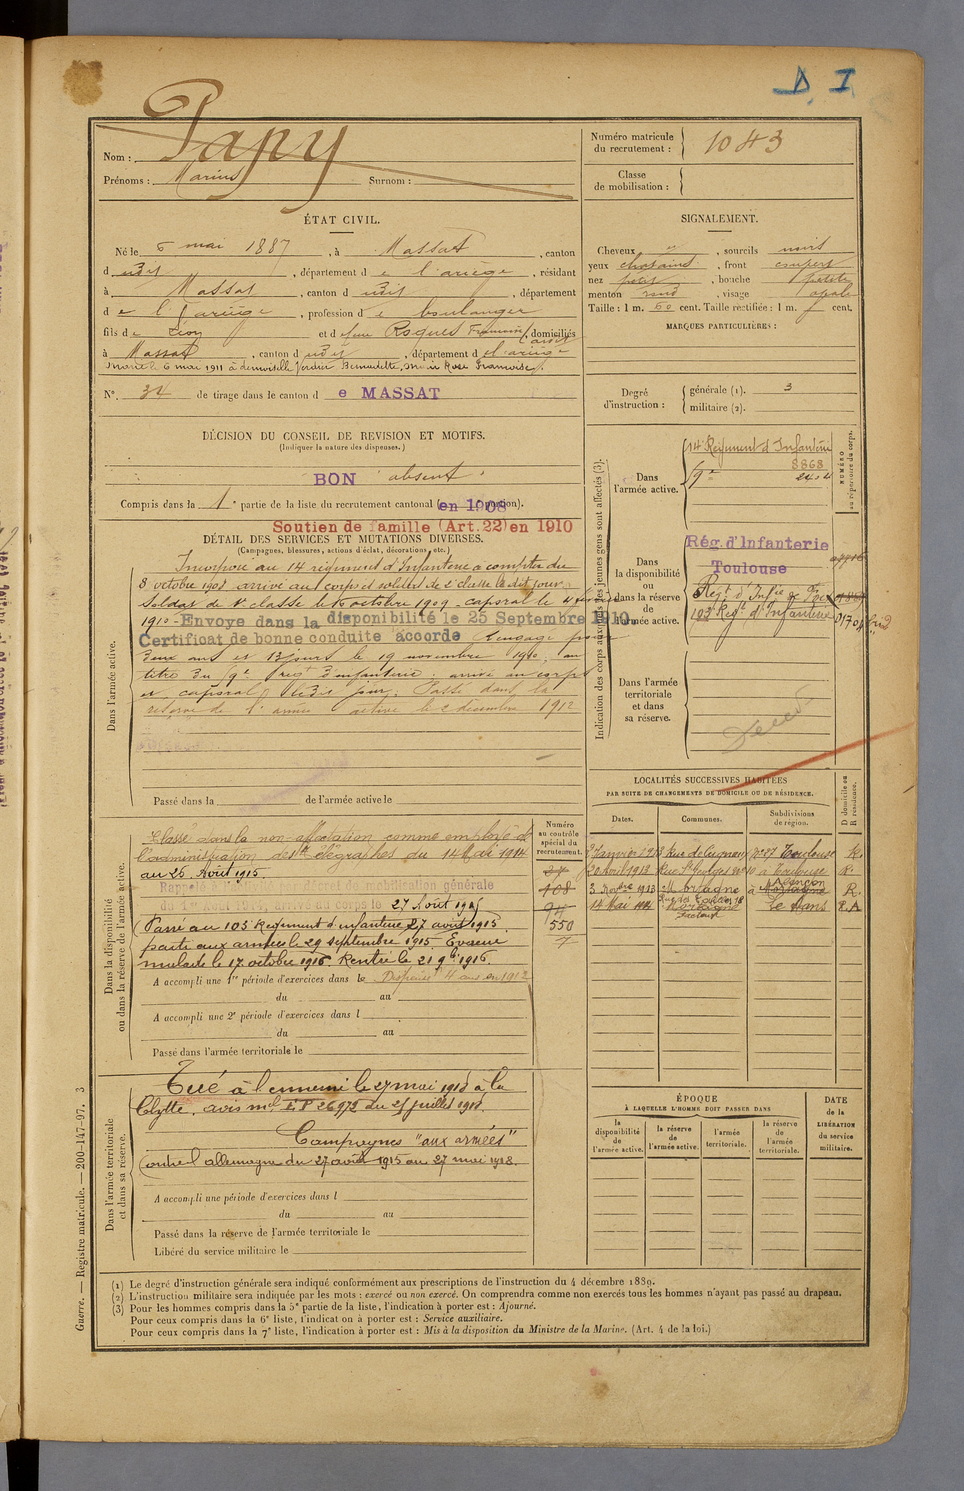 D. I
Nom : Papy
Prénoms : Marius Surnom :
Numéro matricule du recrutement : 1043
Classe de mobilisation :
ÉTAT CIVIL.
Né le 6 mai 1887, à Massat, canton
d udit, département de l'ariège, résidant
à Massat, canton d udit, département
de l'ariège, profession de boulanger
fils de Léon et de Roques Françoise, domiciliés
à Massat, canton d udit, département de l'ariège
Marié le 6 mai 1911 à demoiselle Verdier Bernadette, Marie Rose Françoise.
N° 34 de tirage dans le canton de MASSAT
SIGNALEMENT.
Cheveux, sourcils noirs
yeux chatains, front couvert
nez petit, bouche petite
menton rond, visage ovale
Taille : 1 m. 60 cent. Taille rectifiée : 1 m. cent.
MARQUES PARTICULIÈRES :
Degré d'instruction : générale (1). 3
militaire (2).
DÉCISION DU CONSEIL DE REVISION ET MOTIFS.
(Indiquer la nature des dispenses.)
BON absent
Compris dans la 1e partie de la liste du recrutement cantonal en 1908
Soutien de famille (Art. 22) en 1910
DÉTAIL DES SERVICES ET MUTATIONS DIVERSES.
(Campagnes, blessures, actions d'éclat, décorations, etc.)
Dans l'armée active.
Incorporé au 14 régiment d'Infanterie à compter du
8 octobre 1908 arrivé au corps et soldat de 2e classe le dit jour
Soldat de 1e classe le octobre 1909 - caporal le
1910 - Envoyé dans la disponibilité le 25 Septembre 1910.
Certificat de bonne conduite accordé Rengagé pour
deux ans et 13 jours le 19 novembre 1910, au
titre du 9e régt d'infanterie; arrivé au corps
et caporal le dit jour. Passé dans la
réserve de l'armée active le 2 décembre 1912
Passé dans la de l'armée active le
Indication des corps auxquels les jeunes gens sont affectés (3).
Dans l'armée active.
14e Régiment d'Infanterie
8868
9e
NUMÉRO au répertoire du corps.
Dans la disponibilité ou dans la réserve de l'armée active.
Rég. d'Infanterie
Toulouse
Regt d'Infie de Foix
103 Regt d'Infanterie
Dans l'armée territoriale et dans sa réserve.
Décédé
LOCALITÉS SUCCESSIVES HABITÉES
PAR SUITE DE CHANGEMENTS DE DOMICILE OU DE RÉSIDENCE.
Dates. Communes. Subdivisions de région. D domicile ou R résidence.
Janvier 1913 Rue de Cugnaux No 27 Toulouse R.
20 avril 1913 Rue St Georges No 10 à Toulouse R.
3 Nobre 1913 Mortagne à Alençon R.
14 Mai 1914 Le Mans R.A
Numéro au contrôle spécial du recrutement.
27
108
94
550
Dans la disponibilité ou dans la réserve de l'armée active.
Classé dans la non-affectation comme employé de
l'administration des Télégraphes du 14 Mai 1914
au 25 Août 1915.
Rappelé à l'activité décret de mobilisation générale
du 1er Août 1914, arrivé au corps le 27 Août 1915
Passé au 103 Régiment d'infanterie 27 août 1915.
parti aux armées le 29 septembre 1915. Evacué
malade le 17 octobre 1916. Rentré le 21 9bre 1916.
A accompli une 1re période d'exercices dans le Dispensé 4 ans en 1912
du au
A accompli une 2e période d'exercices dans l
du au
Passé dans l'armée territoriale le
Dans l'armée territoriale et dans sa réserve.
Tué à l'ennemi le 27 mai 1918 à La
Clytte, avis mel E.P 26972 du 21 juillet 1918.
Campagnes "aux armées"
contre l'allemagne du 27 août 1915 au 27 mai 1918.
A accompli une période d'exercices dans l
du au
Passé dans la réserve de l'armée territoriale le
Libéré du service militaire le
ÉPOQUE
À LAQUELLE L'HOMME DOIT PASSER DANS
la disponibilité de l'armée active.
la réserve de l'armée active.
l'armée territoriale.
la réserve de l'armée territoriale.
DATE de la LIBÉRATION du service militaire.
Guerre. — Registre matricule. — 200-147-97. 3
(1) Le degré d'instruction générale sera indiqué conformément aux prescriptions de l'instruction du 4 décembre 1889.
(2) L'instruction militaire sera indiquée par les mots : exercé ou non exercé. On comprendra comme non exercés tous les hommes n'ayant pas passé au drapeau.
(3) Pour les hommes compris dans la 5e partie de la liste, l'indication à porter est : Ajourné.
Pour ceux compris dans la 6e liste, l'indication à porter est : Service auxiliaire.
Pour ceux compris dans la 7e liste, l'indication à porter est : Mis à la disposition du Ministre de la Marine. (Art. 4 de la loi.)